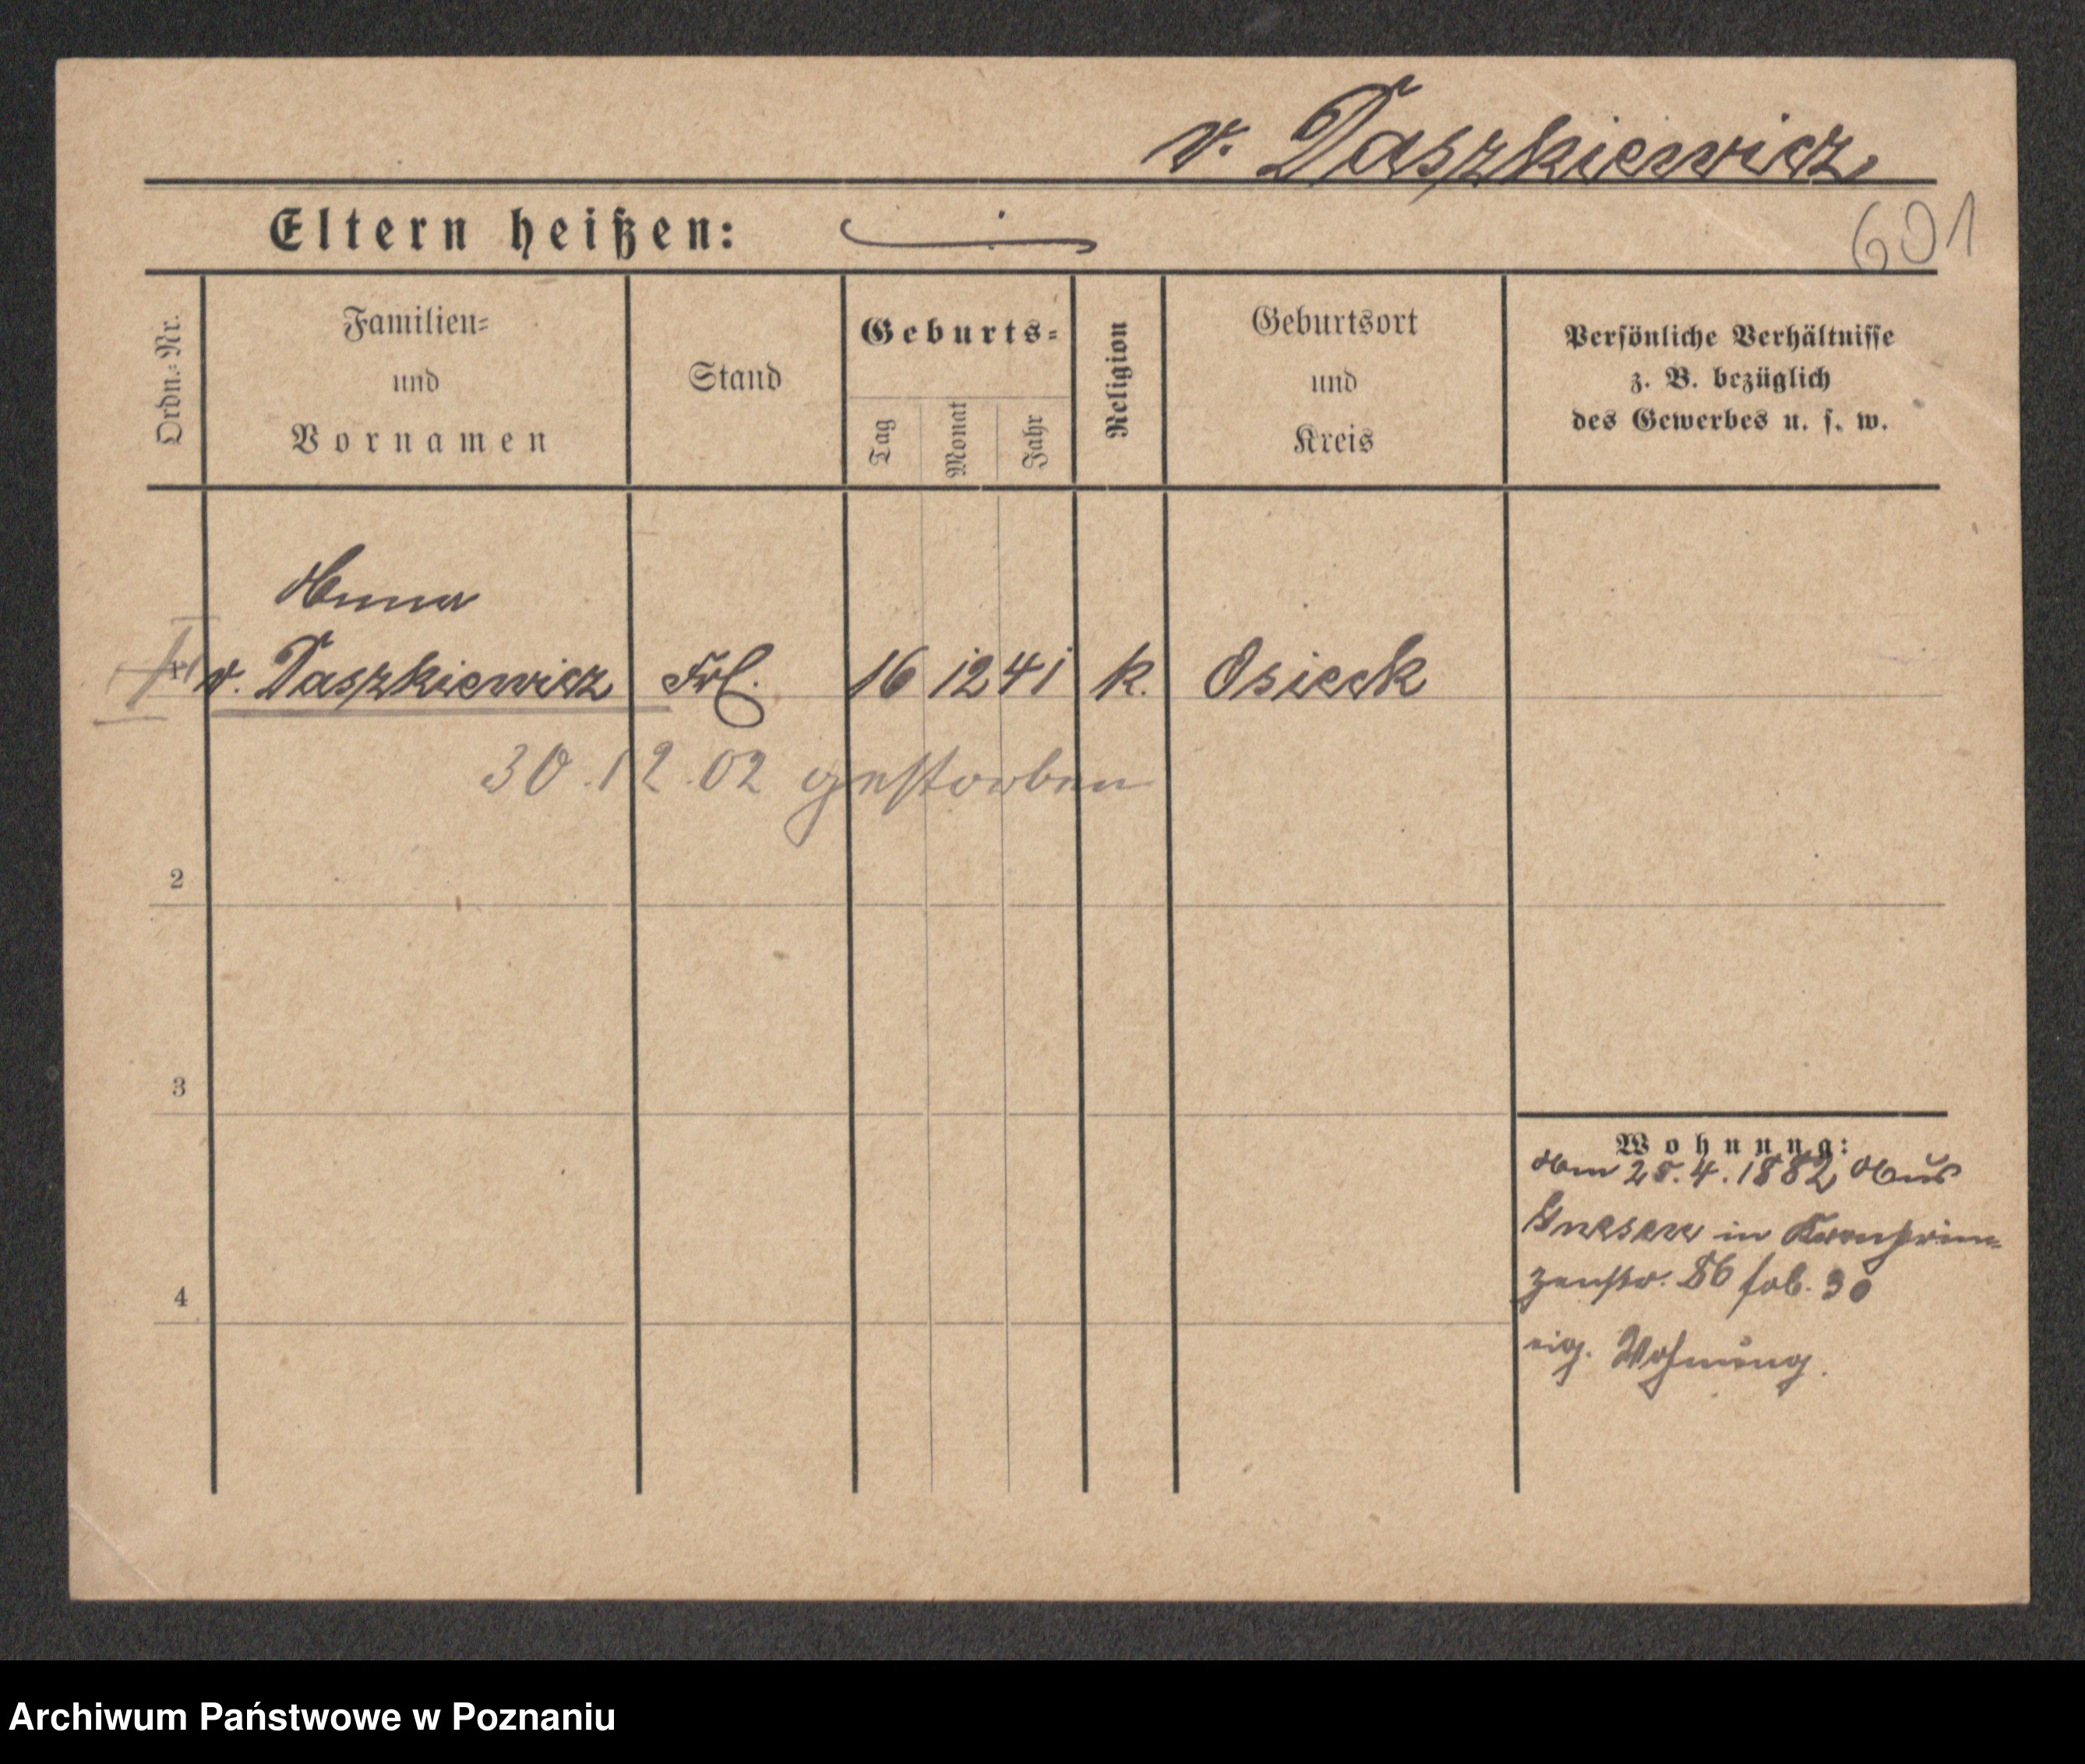 v. Daszkiewicz
Eltern heißen:
601
Ordn.-Nr.
Familien-
und
Vornamen
Stand
Geburts-
Tag
Monat
Jahr
Religion
Geburtsort
und
Kreis
Persönliche Verhältnisse
z. B. bezüglich
des Gewerbes u. s. w.
Anna
1 v. Daszkiewicz Frl. 16 12 41 k. Osieck
30.12.02 gestorben
2
3
4
Wohnung:
Am 25.4.1882 Aus
Gnesen in Kronprin-
zenstr. 86 hab. 30
eig. Wohnung.
Archiwum Państwowe w Poznaniu